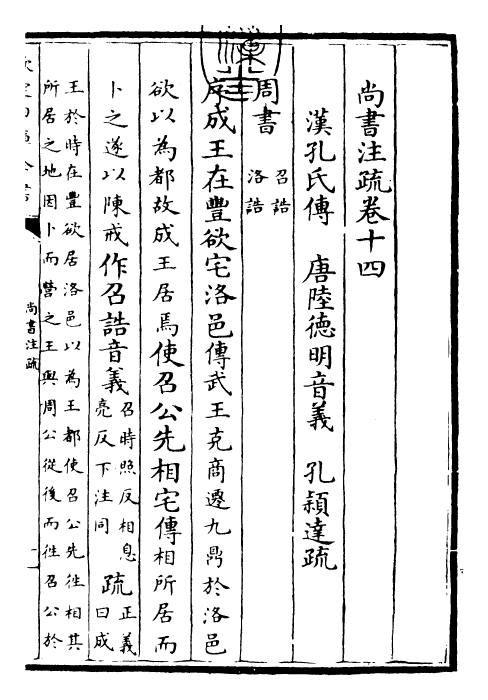 尚書注疏卷十四
漢孔氏傳 唐陸德明音義 孔穎達疏
周書
召誥
洛誥
序成王在豐欲宅洛邑傳武王克商遷九鼎於洛邑
欲以為都故成王居焉使召公先相宅傳相所居而
卜之遂以陳戒作召誥音義召時照反相息
亮反下注同疏正義
曰成
王於時在豐欲居洛邑以為王都使召公先徃相其
所居之地因卜而營之王與周公從後而徃召公於
尚書注疏